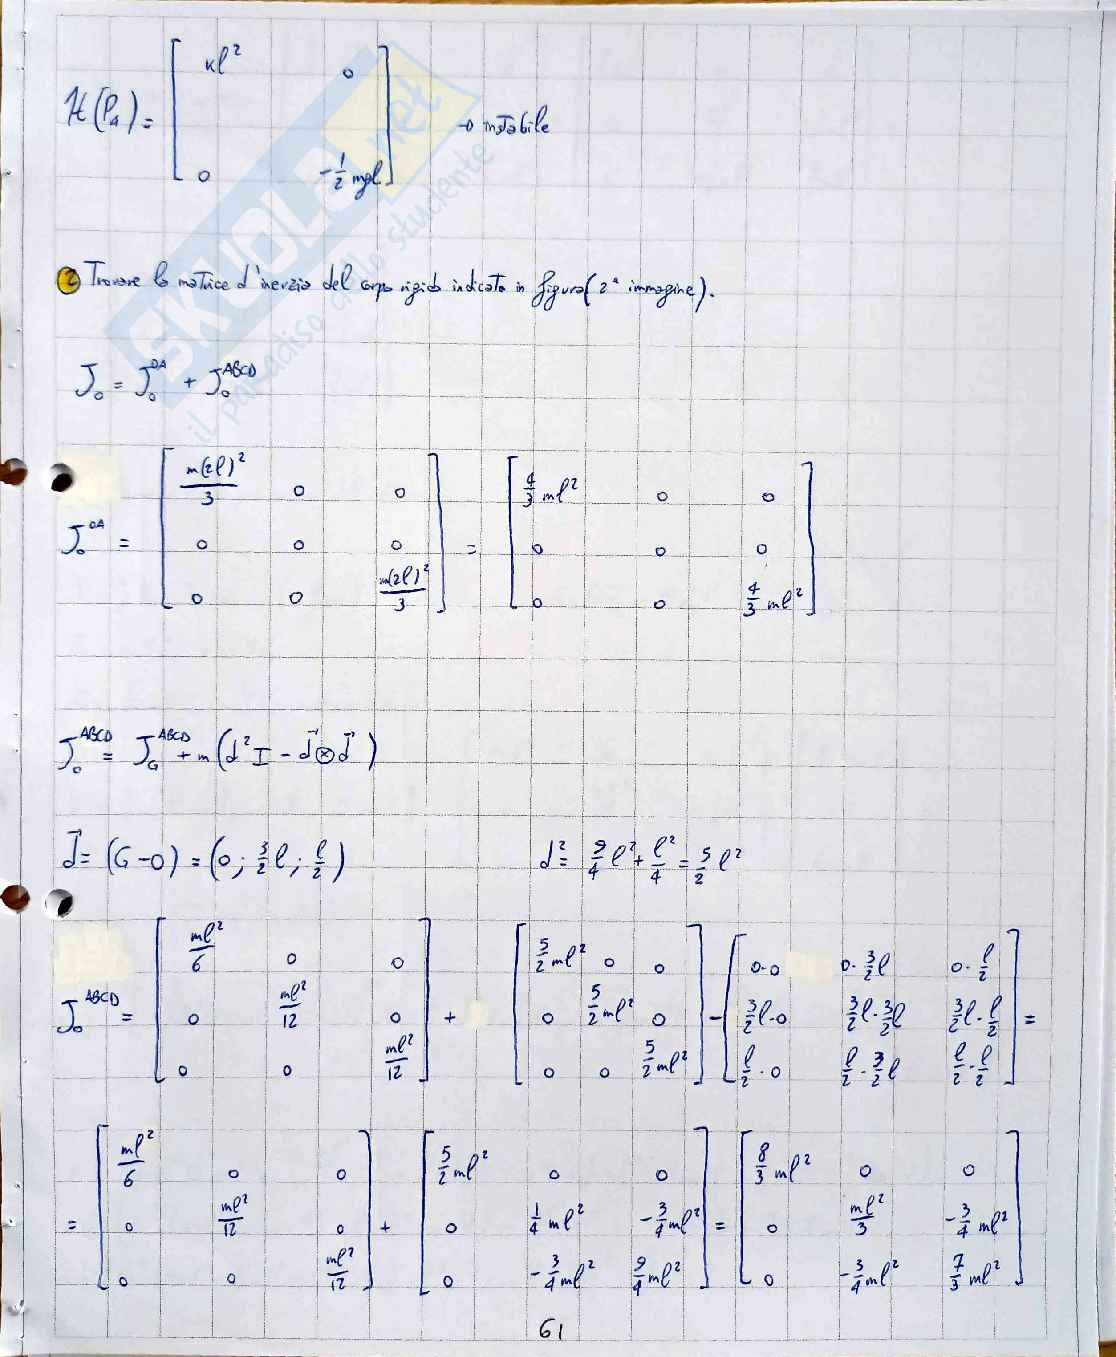 H(P₄) = [ kl² 0 ; 0 -1/2 mgl ] → instabile
SKUOLA.net
il paradiso dello studente
2) Trovare la matrice d'inerzia del corpo rigido indicato in figura (2ª immagine).
J₀ = J₀^OA + J₀^ABCD
J₀^OA = [ m(2l)²/3 0 0 ; 0 0 0 ; 0 0 m(2l)²/3 ] = [ 4/3 ml² 0 0 ; 0 0 0 ; 0 0 4/3 ml² ]
J₀^ABCD = J_G^ABCD + m(d² I - d⃗ ⊗ d⃗)
d⃗ = (G-O) = (0; 3/2 l; l/2) d² = 9/4 l² + l²/4 = 5/2 l²
J₀^ABCD = [ ml²/6 0 0 ; 0 ml²/12 0 ; 0 0 ml²/12 ] + [ 5/2 ml² 0 0 ; 0 5/2 ml² 0 ; 0 0 5/2 ml² ] - [ 0·0 0·3/2 l 0·l/2 ; 3/2 l·0 3/2 l·3/2 l 3/2 l·l/2 ; l/2·0 l/2·3/2 l l/2·l/2 ] =
= [ ml²/6 0 0 ; 0 ml²/12 0 ; 0 0 ml²/12 ] + [ 5/2 ml² 0 0 ; 0 1/4 ml² -3/4 ml² ; 0 -3/4 ml² 9/4 ml² ] = [ 8/3 ml² 0 0 ; 0 ml²/3 -3/4 ml² ; 0 -3/4 ml² 7/3 ml² ]
61